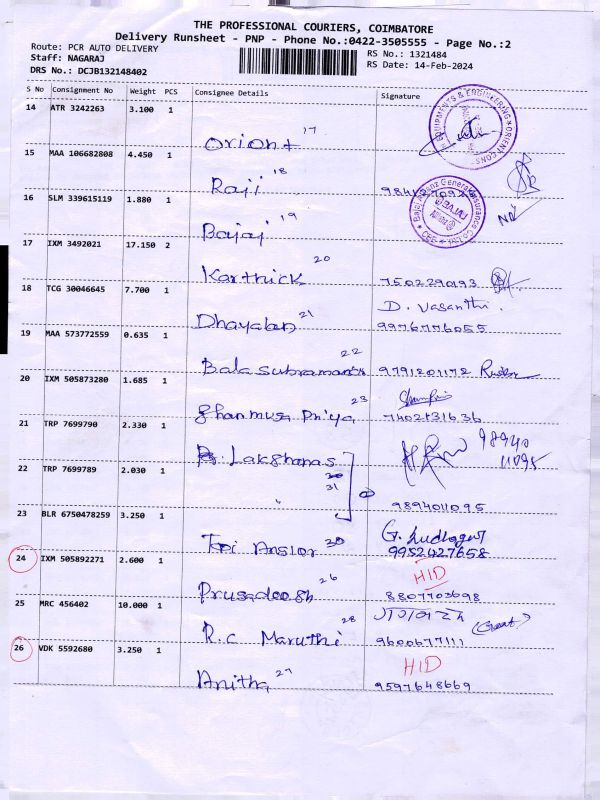 THE PROFESSIONAL COURIERS, COIMBATORE
Delivery Runsheet - PNP - Phone No.:0422-3505555 - Page No.:2
Route: PCR AUTO DELIVERY
RS No.: 1321484
Staff: NAGARAJ
RS Date: 14-Feb-2024
DRS No.: DCJB132148402
S No Consignment No Weight PCS Consignee Details Signature
14 ATR 3242263 3.100 1
Orient 17
15 MAA 106682808 4.450 1
Raji 18
16 SLM 339615119 1.880 1
Bajaj 19
17 IXM 3492021 17.150 2
Karthick 20 7502290193
18 TCG 30046645 7.700 1 D. Vasanthi.
Dhayalan 21 9976776055
19 MAA 573772559 0.635 1
22 9791201172
20 IXM 505873280 1.685 1
Shanmuga Priya 23
21 TRP 7699790 2.330 1
Lakshanas 98940
11095
22 TRP 7699789 2.030 1
31
9894011095
23 BLR 6750478259 3.250 1
30 9952427658
24 IXM 505892271 2.600 1 HID
26 8807703698
25 MRC 456402 10.000 1
R.c Maruthi 28 9600677111
26 VDK 5592680 3.250 1 HID
Anitha 27 9597648669